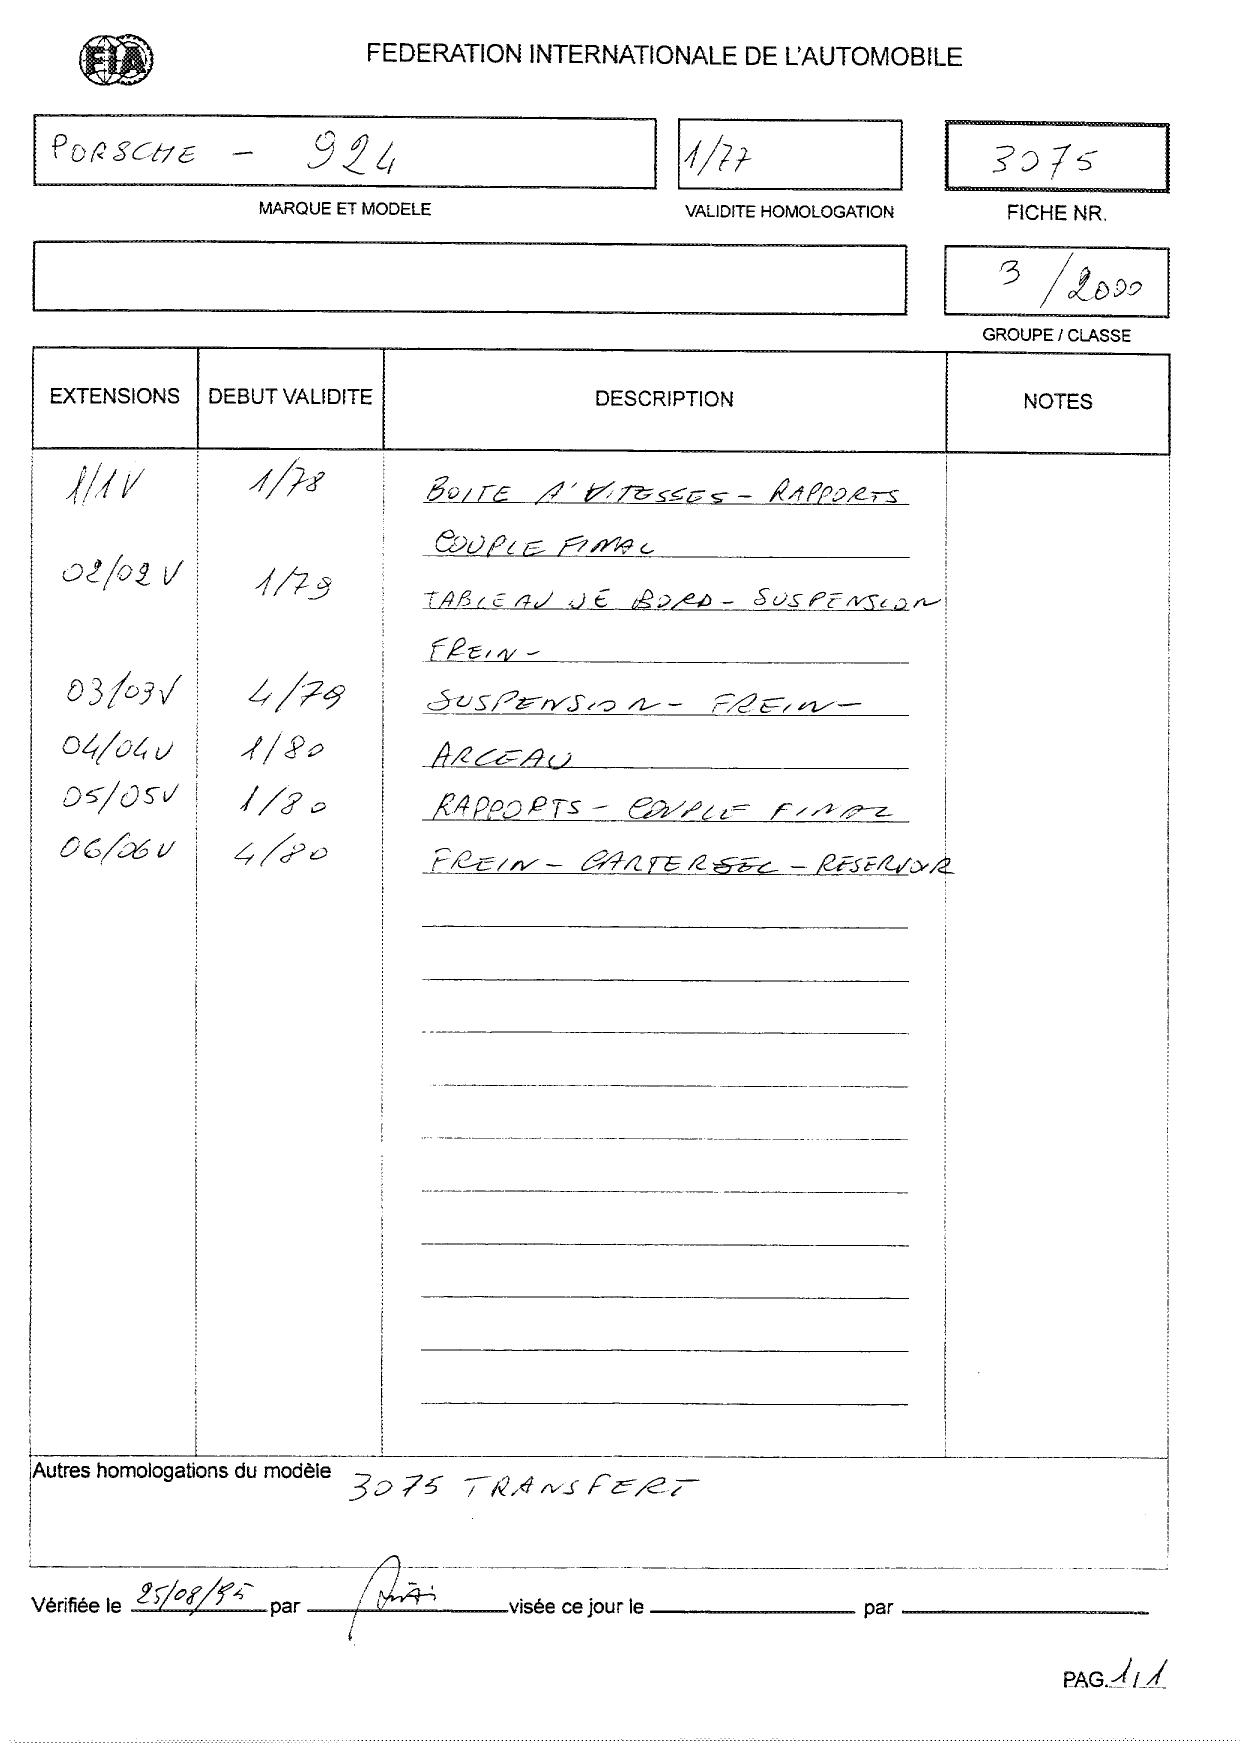 FIA
FEDERATION INTERNATIONALE DE L'AUTOMOBILE
PORSCHE - 924
1/77
3075
MARQUE ET MODELE
VALIDITE HOMOLOGATION
FICHE NR.
3/2000
GROUPE / CLASSE
EXTENSIONS DEBUT VALIDITE DESCRIPTION NOTES
1/1V 1/78 BOITE A' VITESSES - RAPPORTS
COUPLE FINAL
02/02V 1/79 TABLEAU DE BORD - SUSPENSION
FREIN -
03/03V 4/79 SUSPENSION - FREIN -
04/04V 1/80 ARCEAU
05/05V 1/80 RAPPORTS - COUPLE FINAL
06/06V 4/80 FREIN - CARTER SEC - RESERVOIR
Autres homologations du modèle 3075 TRANSFERT
Vérifiée le 25/08/95 par visée ce jour le par
PAG. 1/1